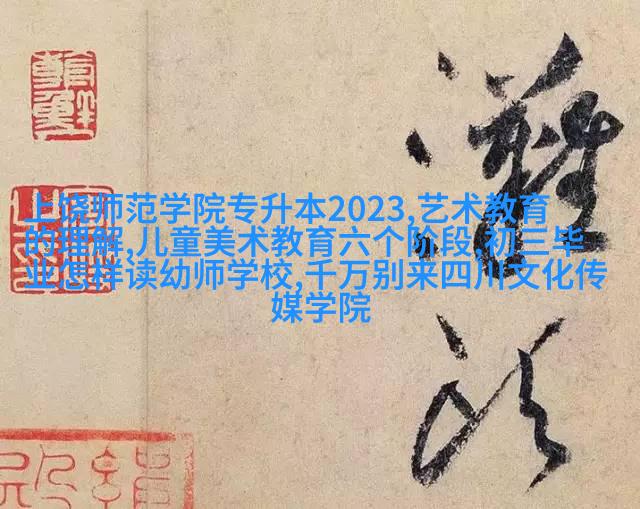 上饶师范学院专升本2023,艺术教育
的理解,儿童美术教育六个阶段,初三毕
业怎样读幼师学校,千万别来四川文化传
媒学院